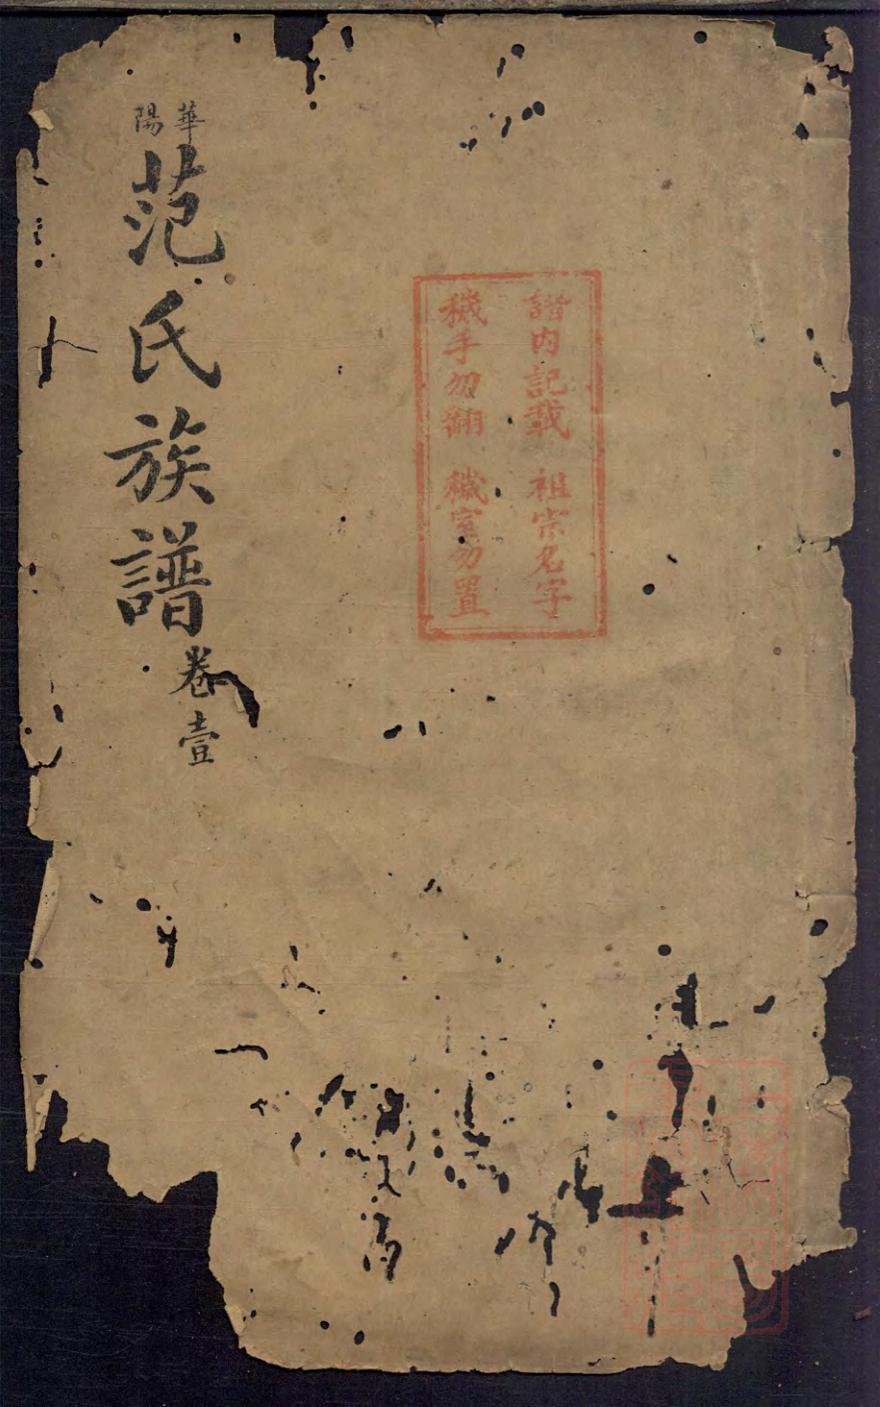 譜內記載 祖宗名字
穢手勿翻 穢室勿置
華陽
范氏族譜
卷壹